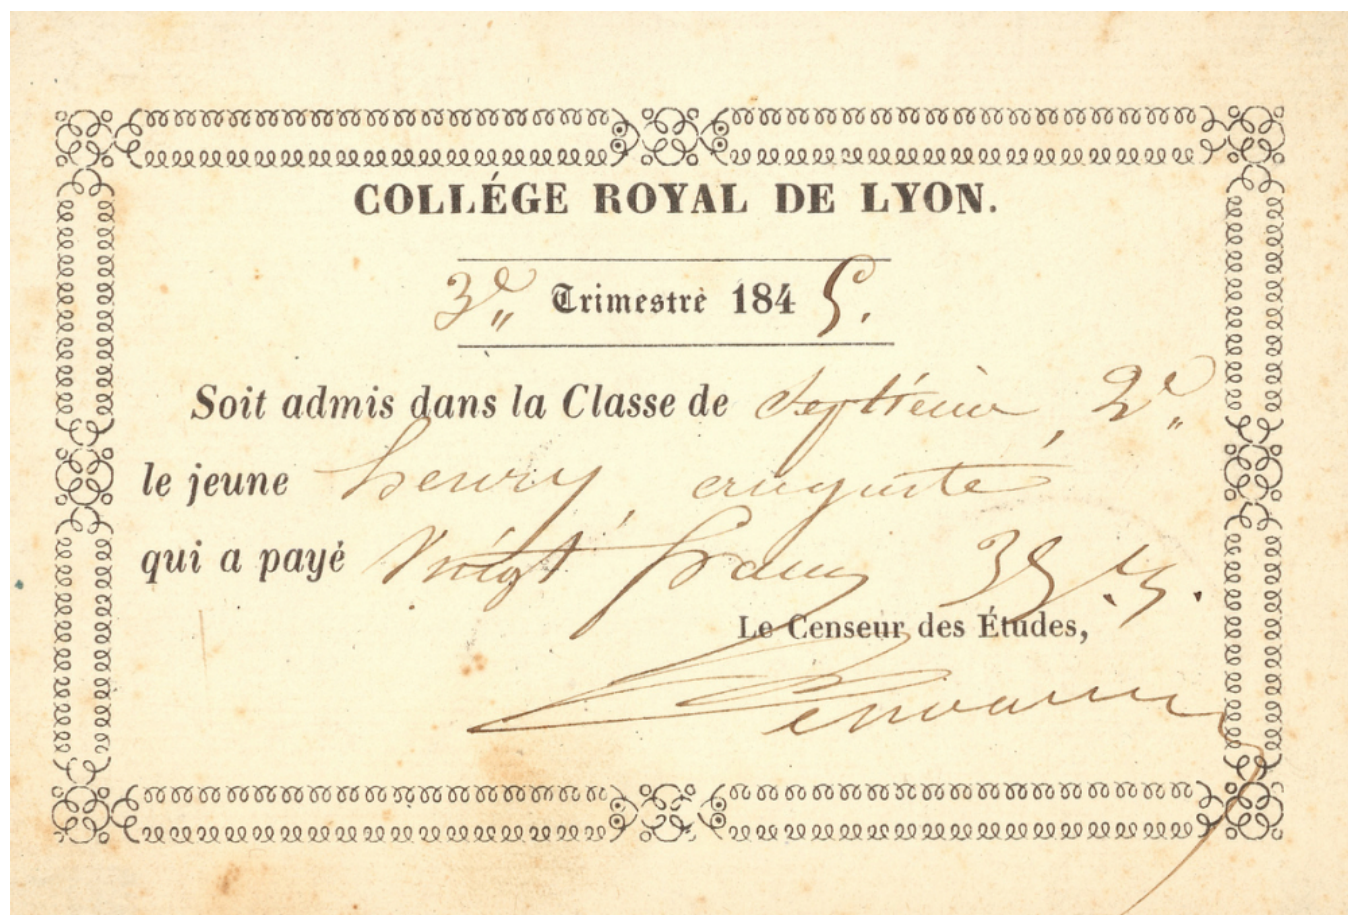 COLLÉGE ROYAL DE LYON.
3e Trimestre 1845.
Soit admis dans la Classe de Septième, 2e
le jeune henry auguste
qui a payé Vingt francs 35.
Le Censeur des Études,